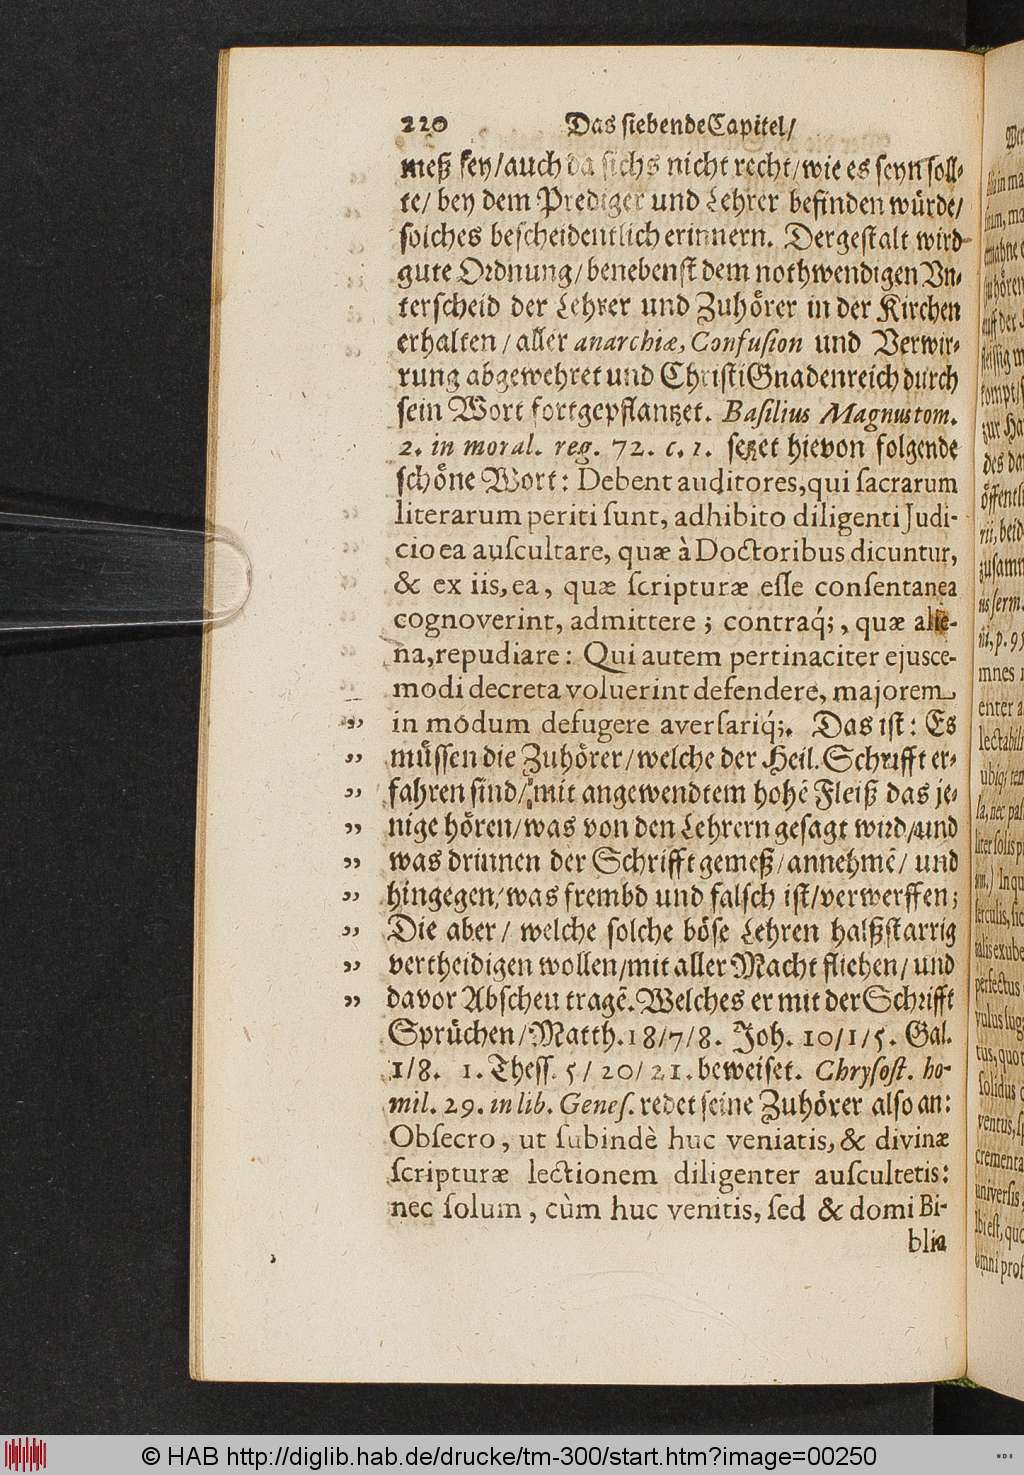 220 Das siebende Capitel/
meß sey/auch da sichs nicht recht/wie es seyn soll-
te/ bey dem Prediger und Lehrer befinden würde/
solches bescheidentlich erinnern. Dergestalt wird
gute Ordnung/benebenst dem nothwendigen Vn-
terscheid der Lehrer und Zuhörer in der Kirchen
erhalten/aller anarchiæ, Confusion und Verwir-
rung abgewehret und Christi Gnadenreich durch
sein Wort fortgepflantzet. Basilius Magnus tom.
2. in moral. reg. 72. c. 1. setzet hievon folgende
schöne Wort: Debent auditores, qui sacrarum
literarum periti sunt, adhibito diligenti Judi-
cio ea auscultare, quæ à Doctoribus dicuntur,
& ex iis, ea, quæ scripturæ esse consentanea
cognoverint, admittere; contraq́;, quæ alie-
na, repudiare: Qui autem pertinaciter ejusce-
modi decreta voluerint defendere, majorem
in modum defugere aversariq́;. Das ist: Es
müssen die Zuhörer/welche der Heil. Schrifft er-
fahren sind/mit angewendtem hohẽ Fleiß das je-
nige hören/was von den Lehrern gesagt wird/und
was drinnen der Schrifft gemeß/annehmẽ/ und
hingegen/was frembd und falsch ist/verwerffen;
Die aber/ welche solche böse Lehren halßstarrig
vertheidigen wollen/mit aller Macht fliehen/ und
davor Abscheu tragẽ. Welches er mit der Schrifft
Sprüchen/Matth. 18/7/8. Joh. 10/1/5. Gal.
1/8. 1. Thess. 5/ 20/21. beweiset. Chrysost. ho-
mil. 29. in lib. Genes. redet seine Zuhörer also an:
Obsecro, ut subindè huc veniatis, & divinæ
scripturæ lectionem diligenter auscultetis:
nec solum, cùm huc venitis, sed & domi Bi-
blia
© HAB http://diglib.hab.de/drucke/tm-300/start.htm?image=00250